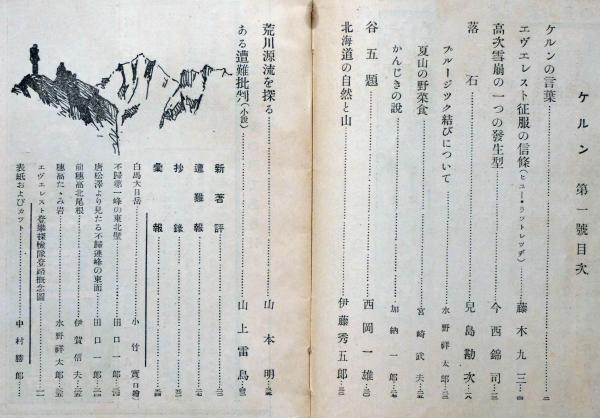 ケルン 第一號目次
ケルンの言葉
エヴェレスト征服の信條(ヒュー・ラツトレッヂ) 藤木九三
高次雪崩の一つの發生型 今西錦司
落石 兒島勘次
ブルージック結びについて 水野祥太郎
夏山の野菜食 宮崎武夫
かんじきの說 加納一郎
谷五題 西岡一雄
北海道の自然と山 伊藤秀五郎
荒川源流を探る 山本明
ある遭難批判(小說) 山上雷鳥
新著評
遭難報
抄錄
彙報
白馬大日岳 小竹寛(口繪)
不歸第一峰の東北壁 田口一郎
唐松澤より見たる不歸連峰の東面 田口一郎
前穗高北尾根 伊賀信夫
穗高たゝみ岩 水野祥太郎
エヴェレスト登攀探檢隊登路槪念圖
表紙およびカツト 中村勝郎